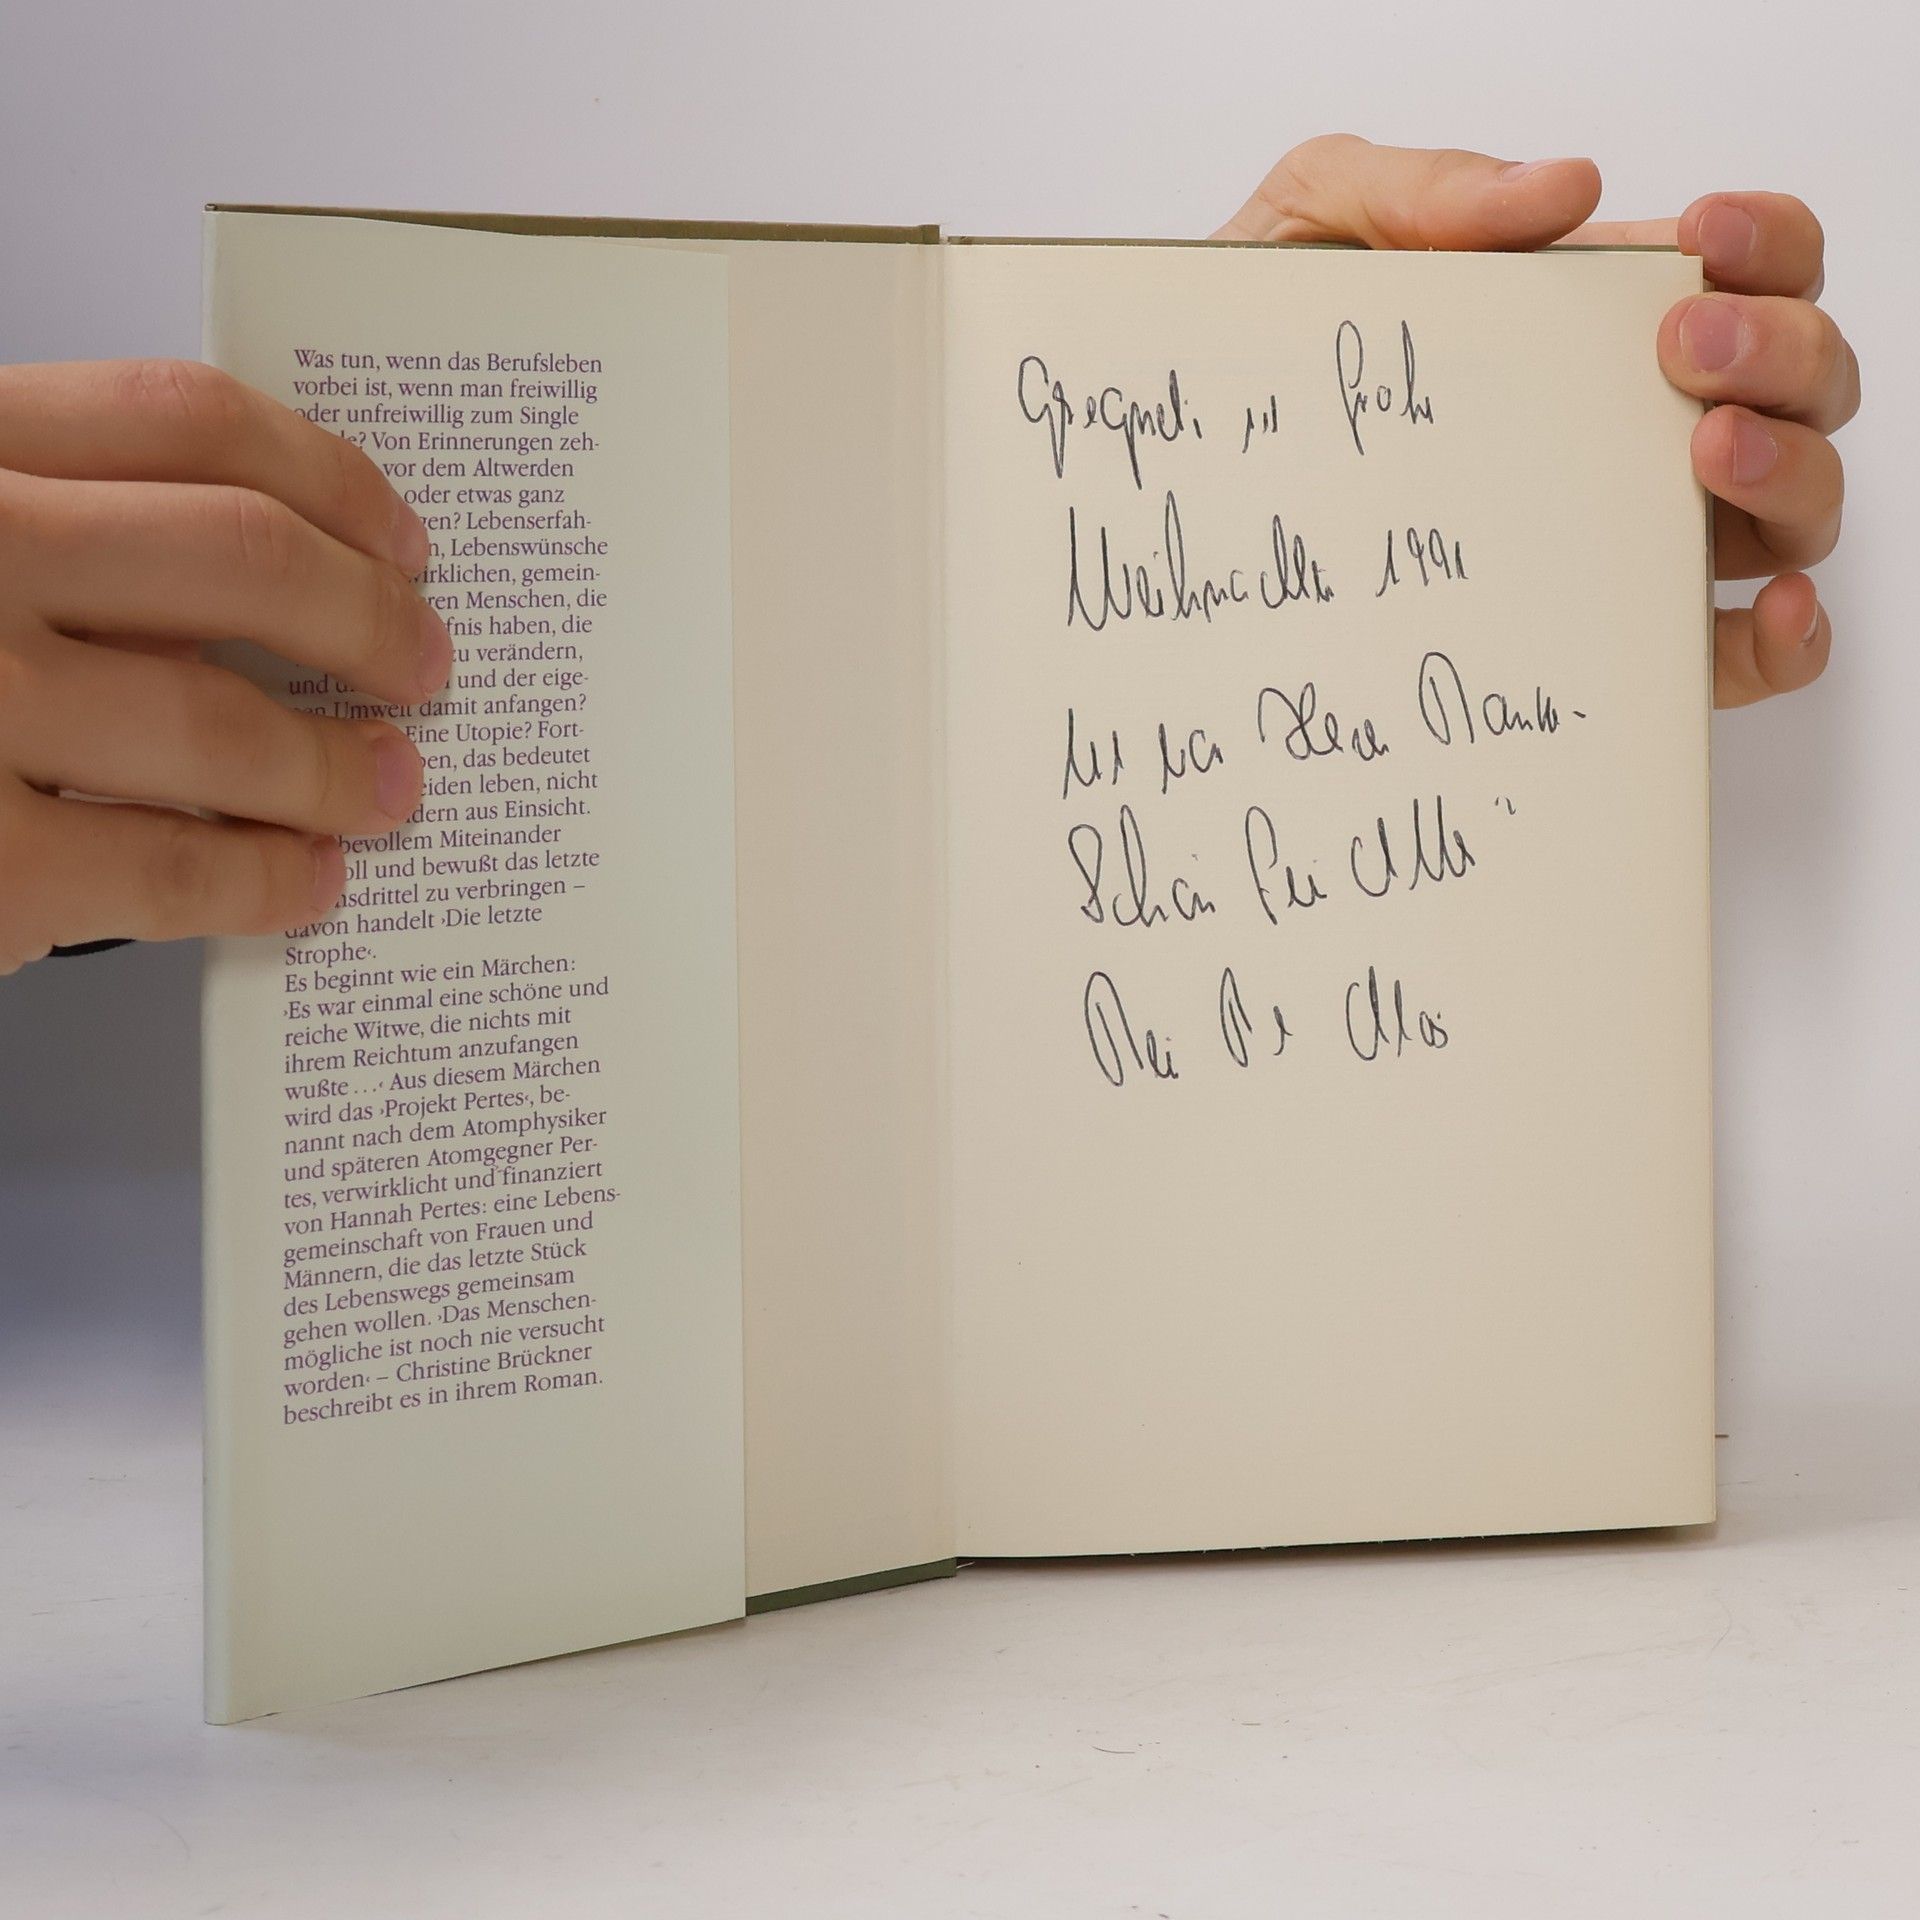 Was tun, wenn das Berufsleben
vorbei ist, wenn man freiwillig
oder unfreiwillig zum Single
? Von Erinnerungen zeh-
vor dem Altwerden
oder etwas ganz
gen? Lebenserfah-
n, Lebenswünsche
wirklichen, gemein-
ren Menschen, die
fnis haben, die
zu verändern,
und und der eige-
nen Umwelt damit anfangen?
Eine Utopie? Fort-
ben, das bedeutet
eiden leben, nicht
dern aus Einsicht.
bevollem Miteinander
oll und bewußt das letzte
nsdrittel zu verbringen –
davon handelt ›Die letzte
Strophe‹.
Es beginnt wie ein Märchen:
›Es war einmal eine schöne und
reiche Witwe, die nichts mit
ihrem Reichtum anzufangen
wußte …‹ Aus diesem Märchen
wird das ›Projekt Pertes‹, be-
nannt nach dem Atomphysiker
und späteren Atomgegner Per-
tes, verwirklicht und finanziert
von Hannah Pertes: eine Lebens-
gemeinschaft von Frauen und
Männern, die das letzte Stück
des Lebenswegs gemeinsam
gehen wollen. ›Das Menschen-
mögliche ist noch nie versucht
worden‹ – Christine Brückner
beschreibt es in ihrem Roman.
frohe
Weihnachten 1991